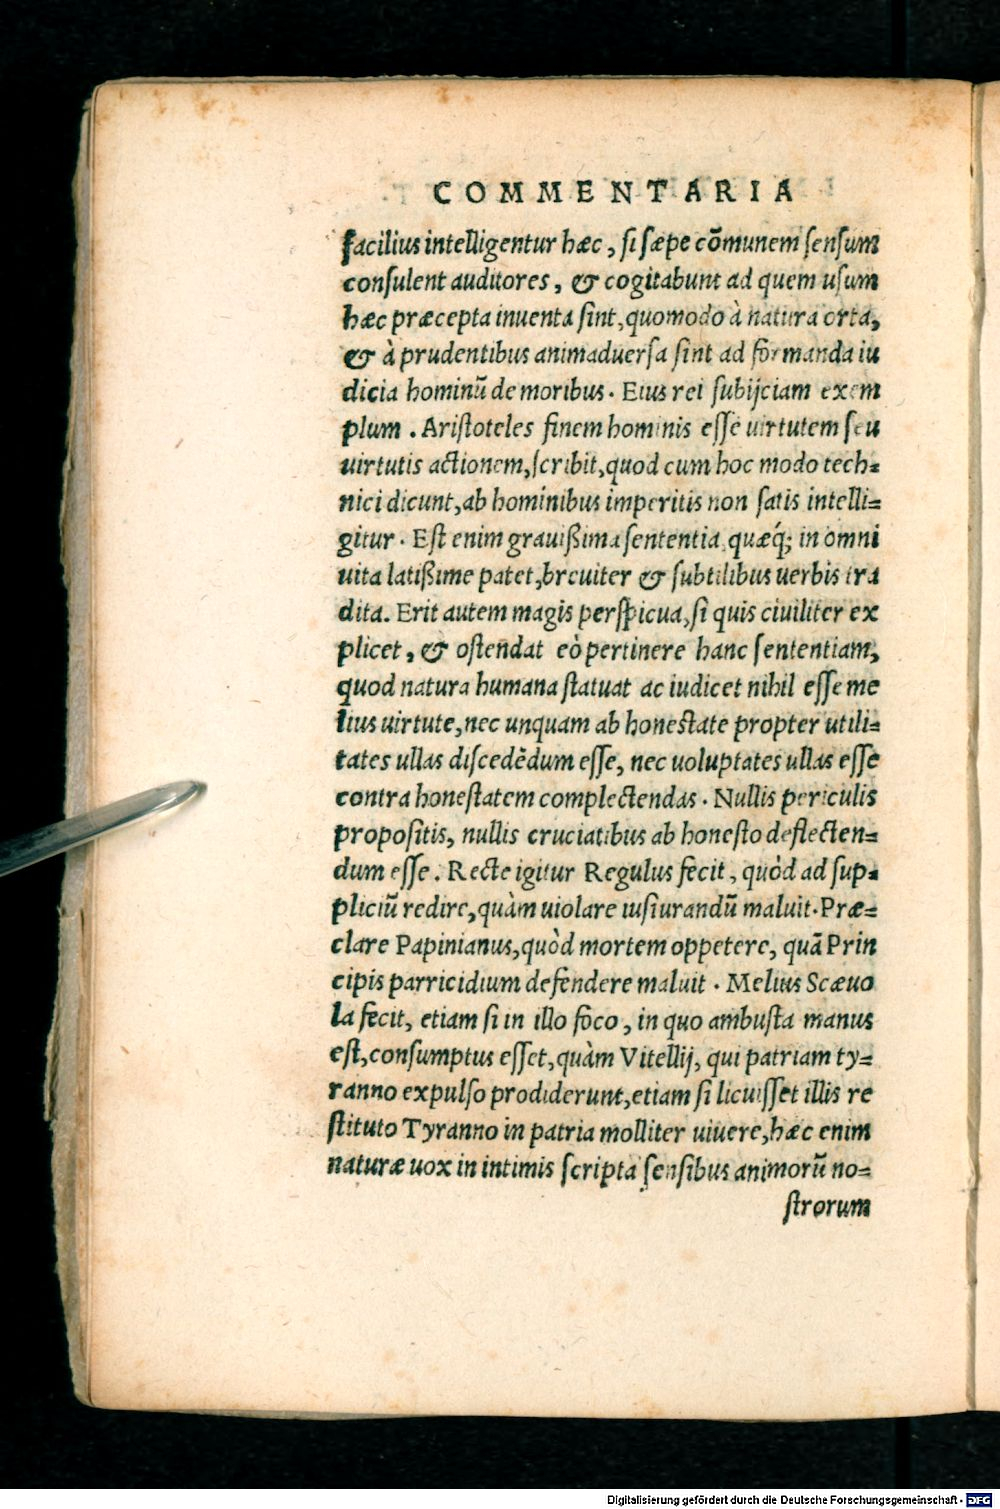 COMMENTARIA
facilius intelligentur hæc, si sæpe cõmunem sensum
consulent auditores, & cogitabunt ad quem usum
hæc præcepta inuenta sint, quomodo à natura orta,
& à prudentibus animaduersa sint ad formanda iu
dicia hominũ de moribus. Eius rei subijciam exem
plum. Aristoteles finem hominis esse uirtutem seu
uirtutis actionem, scribit, quod cum hoc modo tech-
nici dicunt, ab hominibus imperitis non satis intelli-
gitur. Est enim grauißima sententia, quæq́; in omni
uita latißime patet, breuiter & subtilibus uerbis tra
dita. Erit autem magis perspicua, si quis ciuiliter ex
plicet, & ostendat eò pertinere hanc sententiam,
quod natura humana statuat ac iudicet nihil esse me
lius uirtute, nec unquam ab honestate propter utili-
tates ullas discedẽdum esse, nec uoluptates ullas esse
contra honestatem complectendas. Nullis periculis
propositis, nullis cruciatibus ab honesto deflecten-
dum esse. Recte igitur Regulus fecit, quòd ad sup-
pliciũ redire, quàm uiolare iusiurandũ maluit. Præ-
clare Papinianus, quòd mortem oppetere, quã Prin
cipis parricidium defendere maluit. Melius Scæuo
la fecit, etiam si in illo foco, in quo ambusta manus
est, consumptus esset, quàm Vitellij, qui patriam ty-
ranno expulso prodiderunt, etiam si licuisset illis re
stituto Tyranno in patria molliter uiuere, hæc enim
naturæ uox in intimis scripta sensibus animorũ no-
strorum
Digitalisierung gefördert durch die Deutsche Forschungsgemeinschaft - DFG